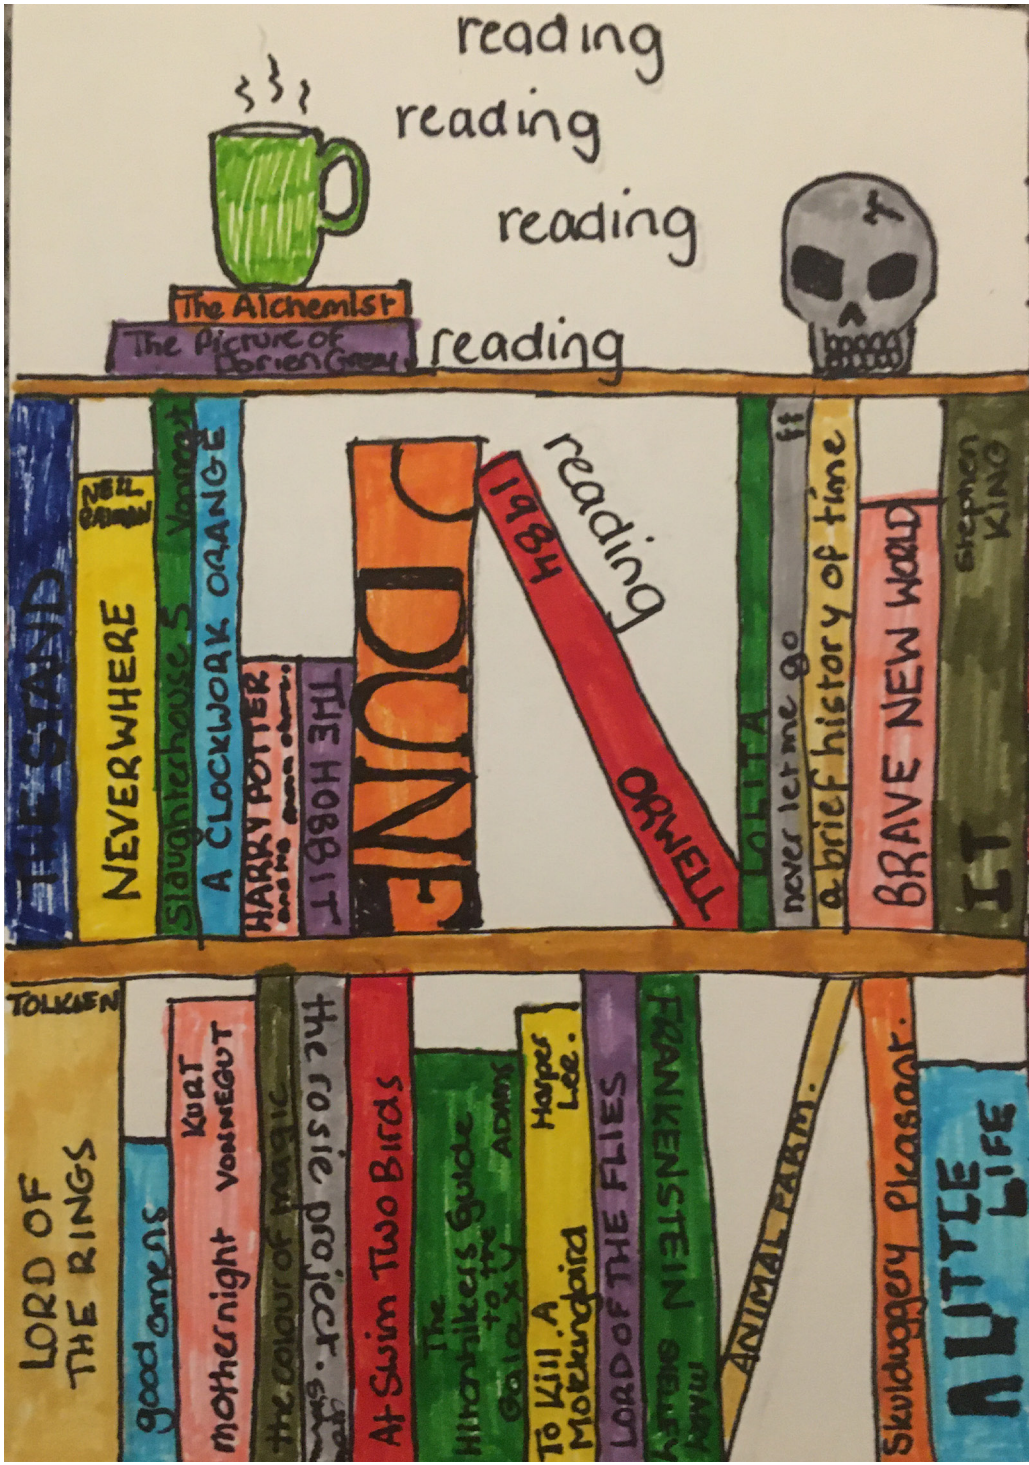 reading
reading
reading
The Alchemist
The Picture of
Dorien Grey.
reading
THE STAND
NEIL
GAIMAN
NEVERWHERE
Slaughterhouse 5 Vonnegut
A CLOCKWORK ORANGE
HARRY POTTER
and the
THE HOBBIT
DUNE
1984 ORWELL
reading
LOLITA
never let me go
a brief history of time
BRAVE NEW WORLD
Stephen
KING
IT
TOLKIEN
LORD OF
THE RINGS
good omens
KURT
VONNEGUT
mothernight
the colour of magic
the rosie project.
At Swim Two Birds
The
Hitchhikers Guide
to the
Galaxy
ADAMS
Harper
Lee.
To Kill A
Mockingbird
LORD OF THE FLIES
FRANKENSTEIN
MARY
SHELLEY
ANIMAL FARM.
Skulduggery Pleasant.
A LITTLE
LIFE